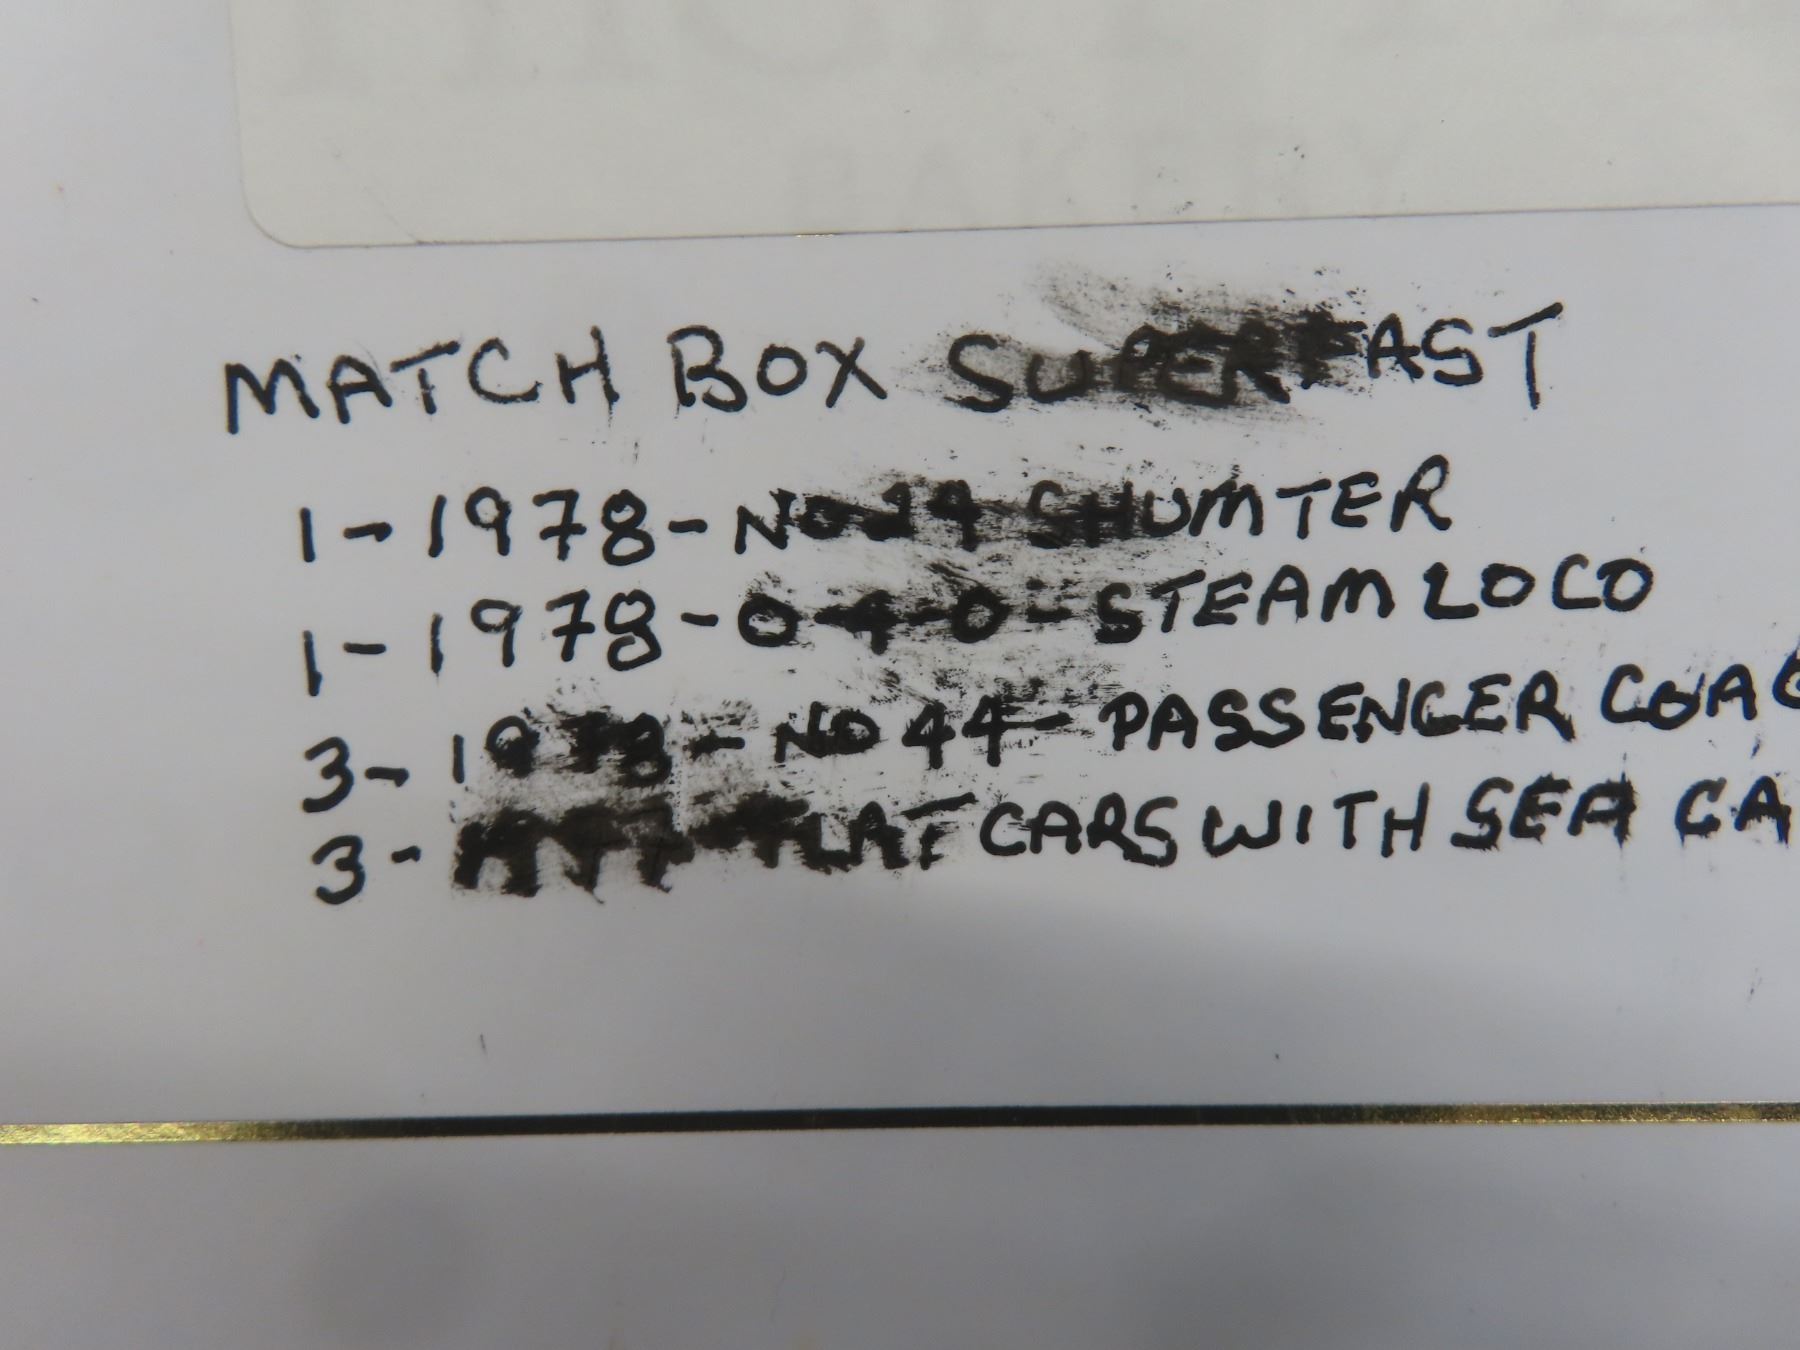 BAKERY
MATCH BOX SUPERFAST
1-1978-NO 24 SHUMTER
1-1978-0-4-0-STEAM LOCO
3-1978-NO 44-PASSENGER COAC
3-1977 FLAT CARS WITH SEA CA